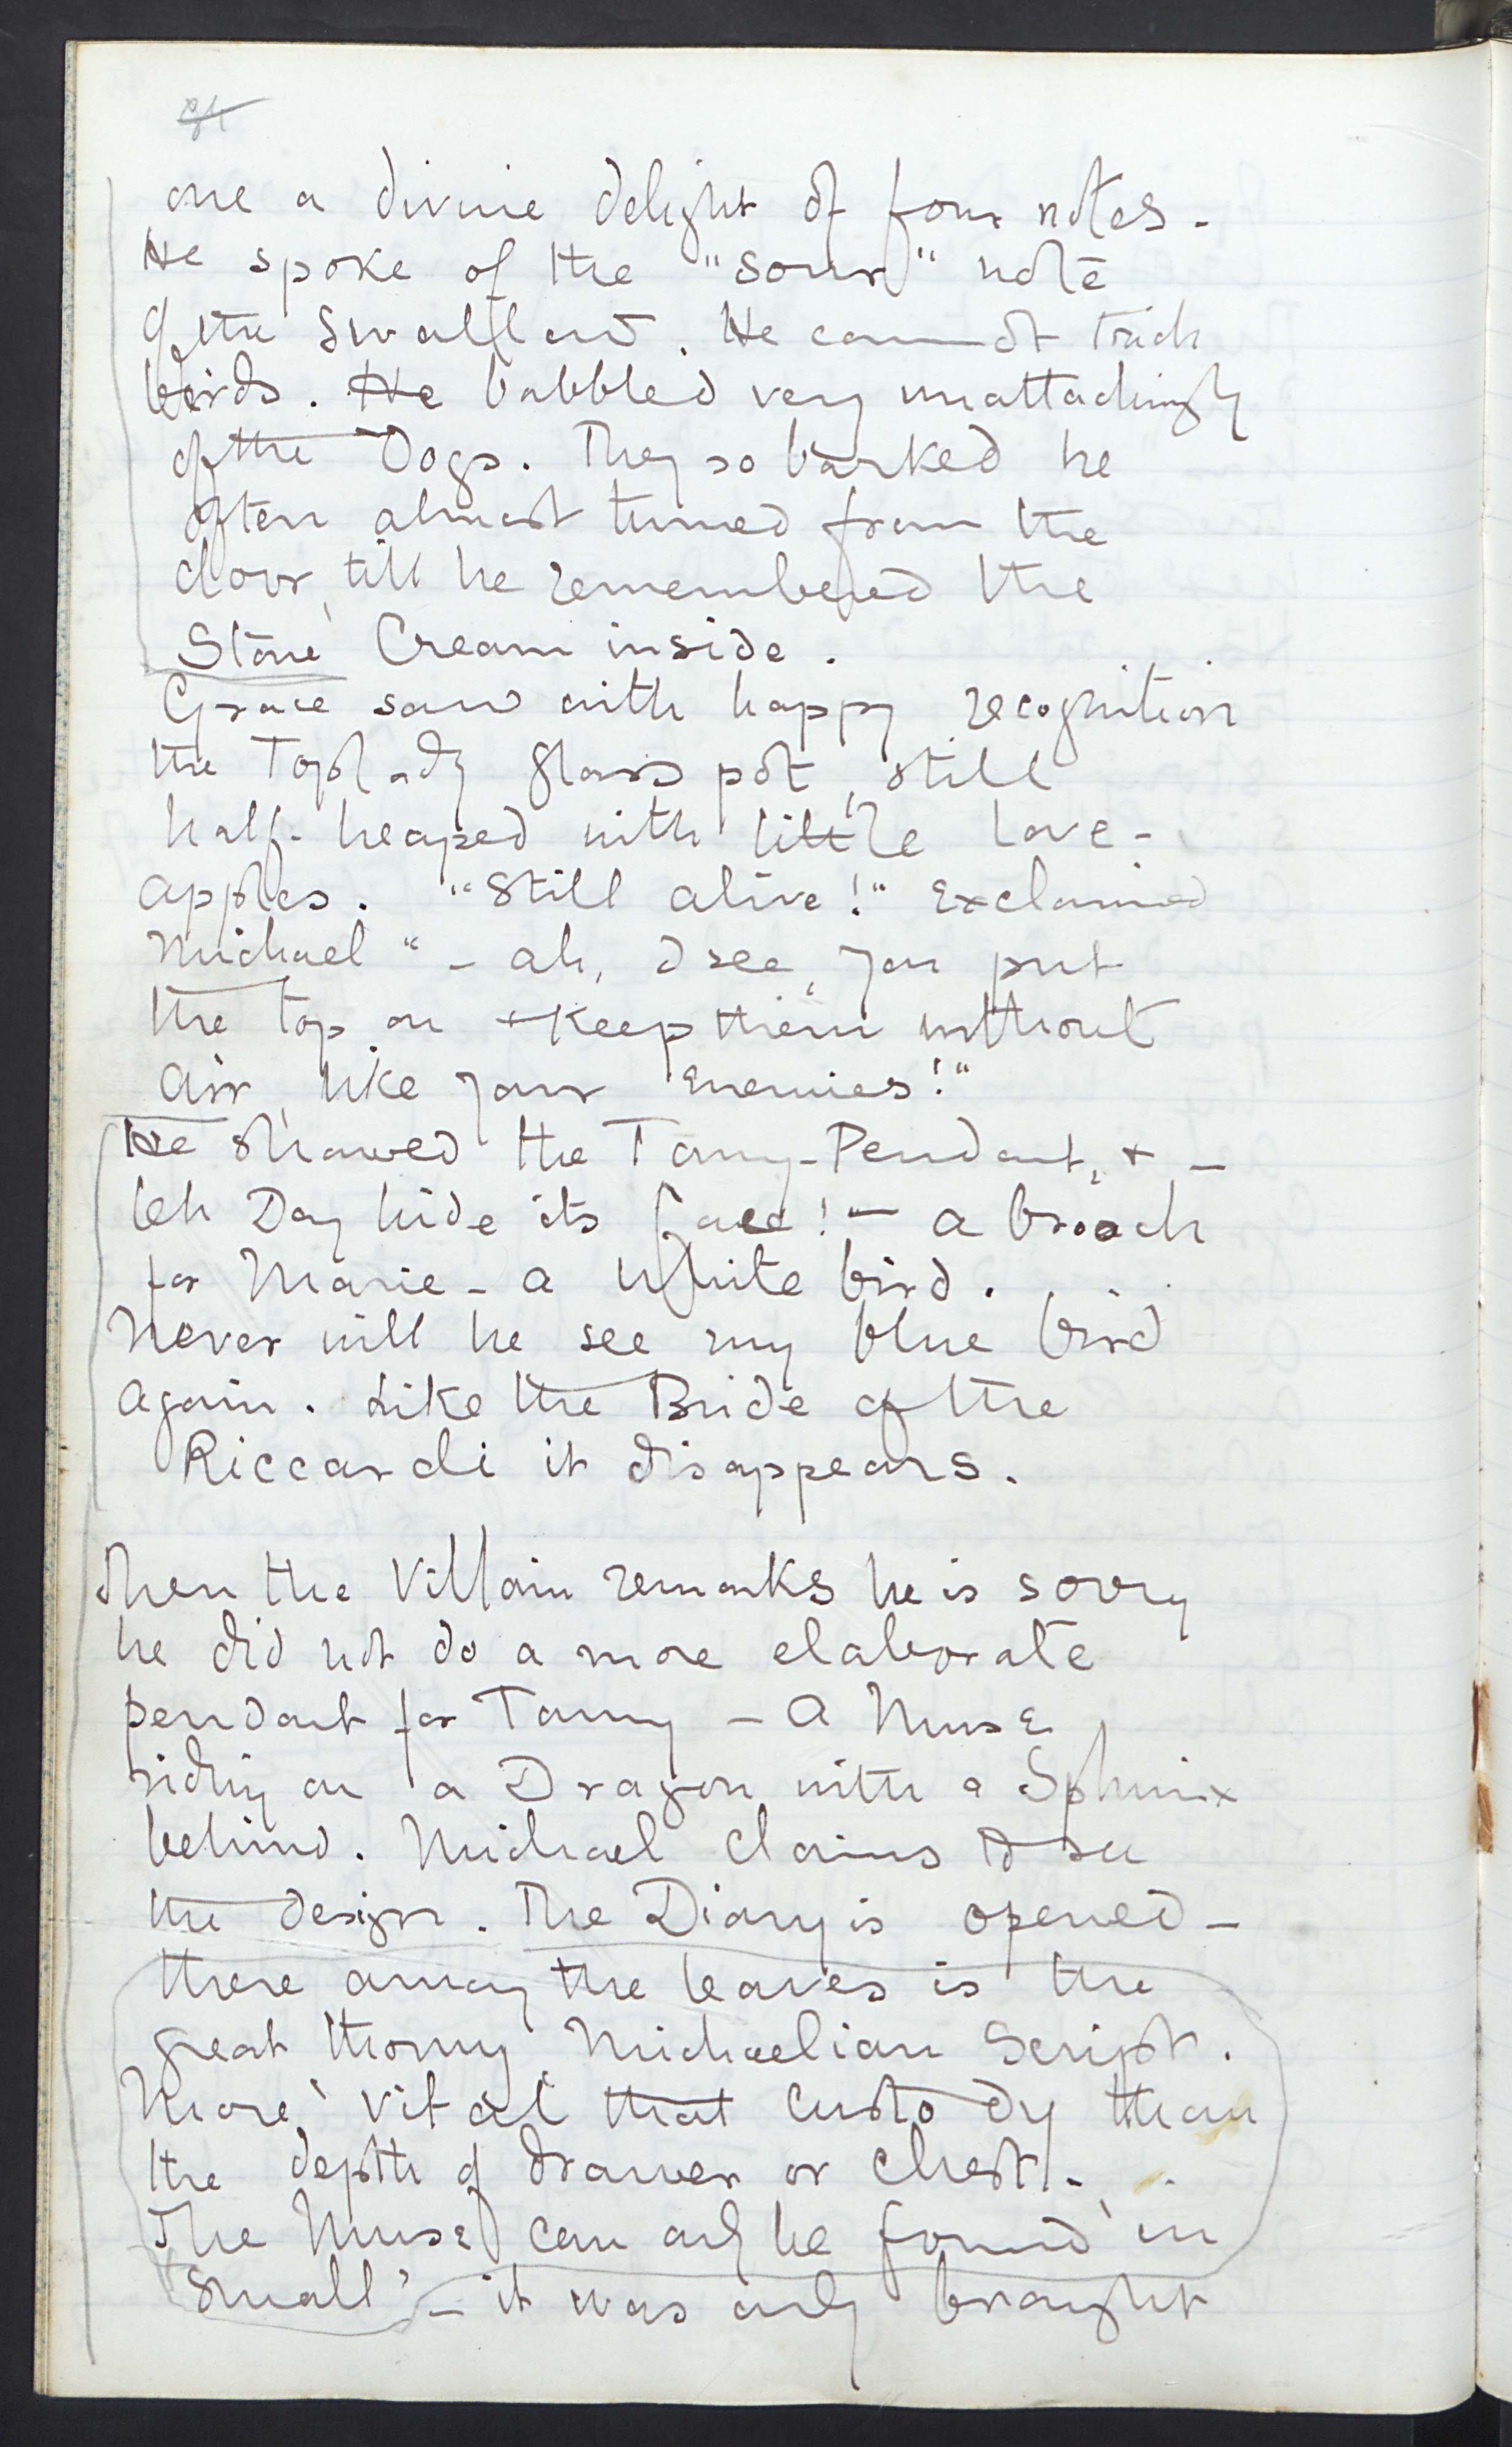 one a divine delight of four notes -
He spoke of the "sour" note
of the Swallow. He cannot touch
birds. He babbled very unattachingly
of the Dogs. They so barked he
often almost turned from the
door, till he remembered the
Stone Cream inside.
Grace saw with happy recognition
the Toplady glass pot, still
half-heaped with little love-
apples. "Still alive!" Exclaimed
Michael " - ah, I see, you put
the top on & keep them without
air, like your enemies!"
He showed the Tommy-Pendant, & -
let Day hide its face! - a brooch
for Marie - a white bird.
Never will he see my blue bird
again. Like the Bride of the
Riccardi it disappears.
Then the Villain remarks he is sorry
he did not do a more elaborate
pendant for Tommy - a Muse
riding on a Dragon with a Sphinx
behind. Michael claims to see
the design. The Diary is opened -
there among the leaves is the
great thorny Michaelian Script.
More vital that custody than
the depth of drawer or chest -
The Muse can only be found 'in
small' - it was only brought